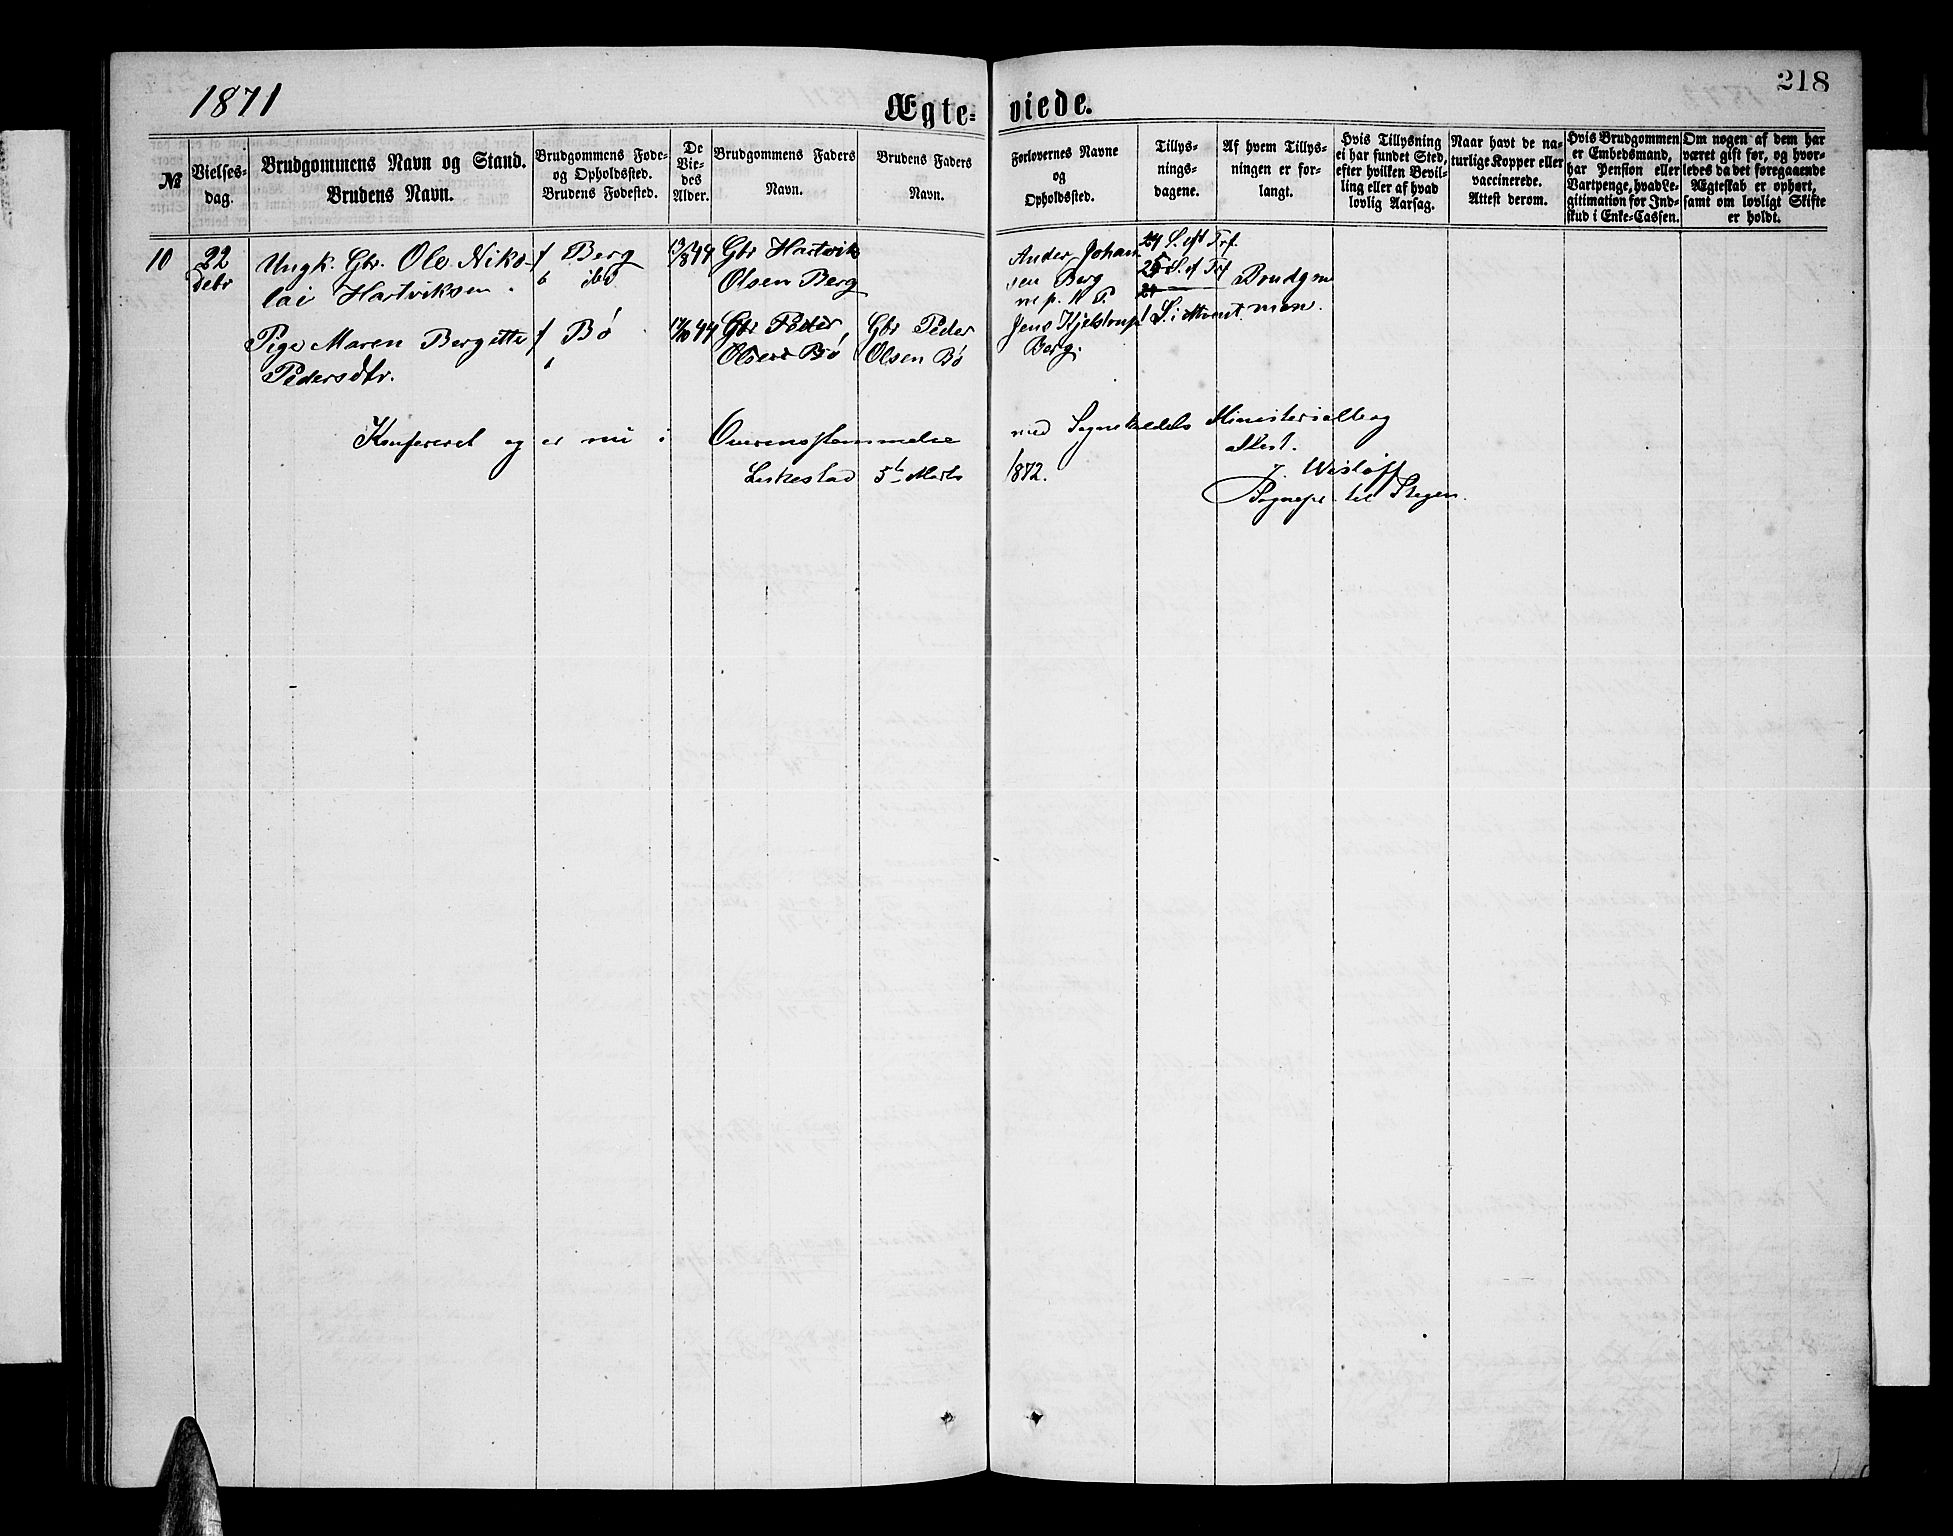 1871
Ægte-
viede.
218
№
Vielses-
dag.
Brudgommens Navn og Stand.
Brudens Navn.
Brudgommens Føde-
og Opholdssted.
Brudens Fødested.
De
Vie-
des
Alder.
Brudgommens Faders
Navn.
Brudens Faders
Navn.
Forlovernes Navne
og
Opholdssted.
Tillys-
nings-
dagene.
Af hvem Tillys-
ningen er for-
langt.
Hvis Tillysning
ei har fundet Sted,
efter hvilken Bevil-
ling eller af hvad
lovlig Aarsag.
Naar havt de na-
turlige Kopper eller
vaccinerede.
Attest derom.
Hvis Brudgommen
er Embedsmand,
har Pension eller
Vartpenge, hvad Le-
gitimation for Ind-
skud i Enke-Cassen.
Om nogen af dem har
været gift før, og hvor-
ledes da det foregaaende
Ægteskab er ophørt,
samt om lovligt Skifte
er holdt.
10
22
Debr
Ungk. Gbr. Ole Niko-
lai Hartviksen.
f Berg
b ibd
13/8 44
Gbr Hartvik
Olsen Berg
Ander Johan
sen Berg
24 S. eft Trf.
25 S. ef Trf
Brudgm
Pige Maren Bergitte
Pedersdtr.
f Bø
Gbr Peder
Olsen Bø
Gbr Peder
Olsen Bø
Jens Kjelstrup
Berg.
1 S. i Advent
Konfereret og er nu i Overensstemmelse
med Sognekaldets Ministerialbog
Attest.
Leikestad 5t Marts
1872.
J. Wisløff
Sognepr til Stegen.